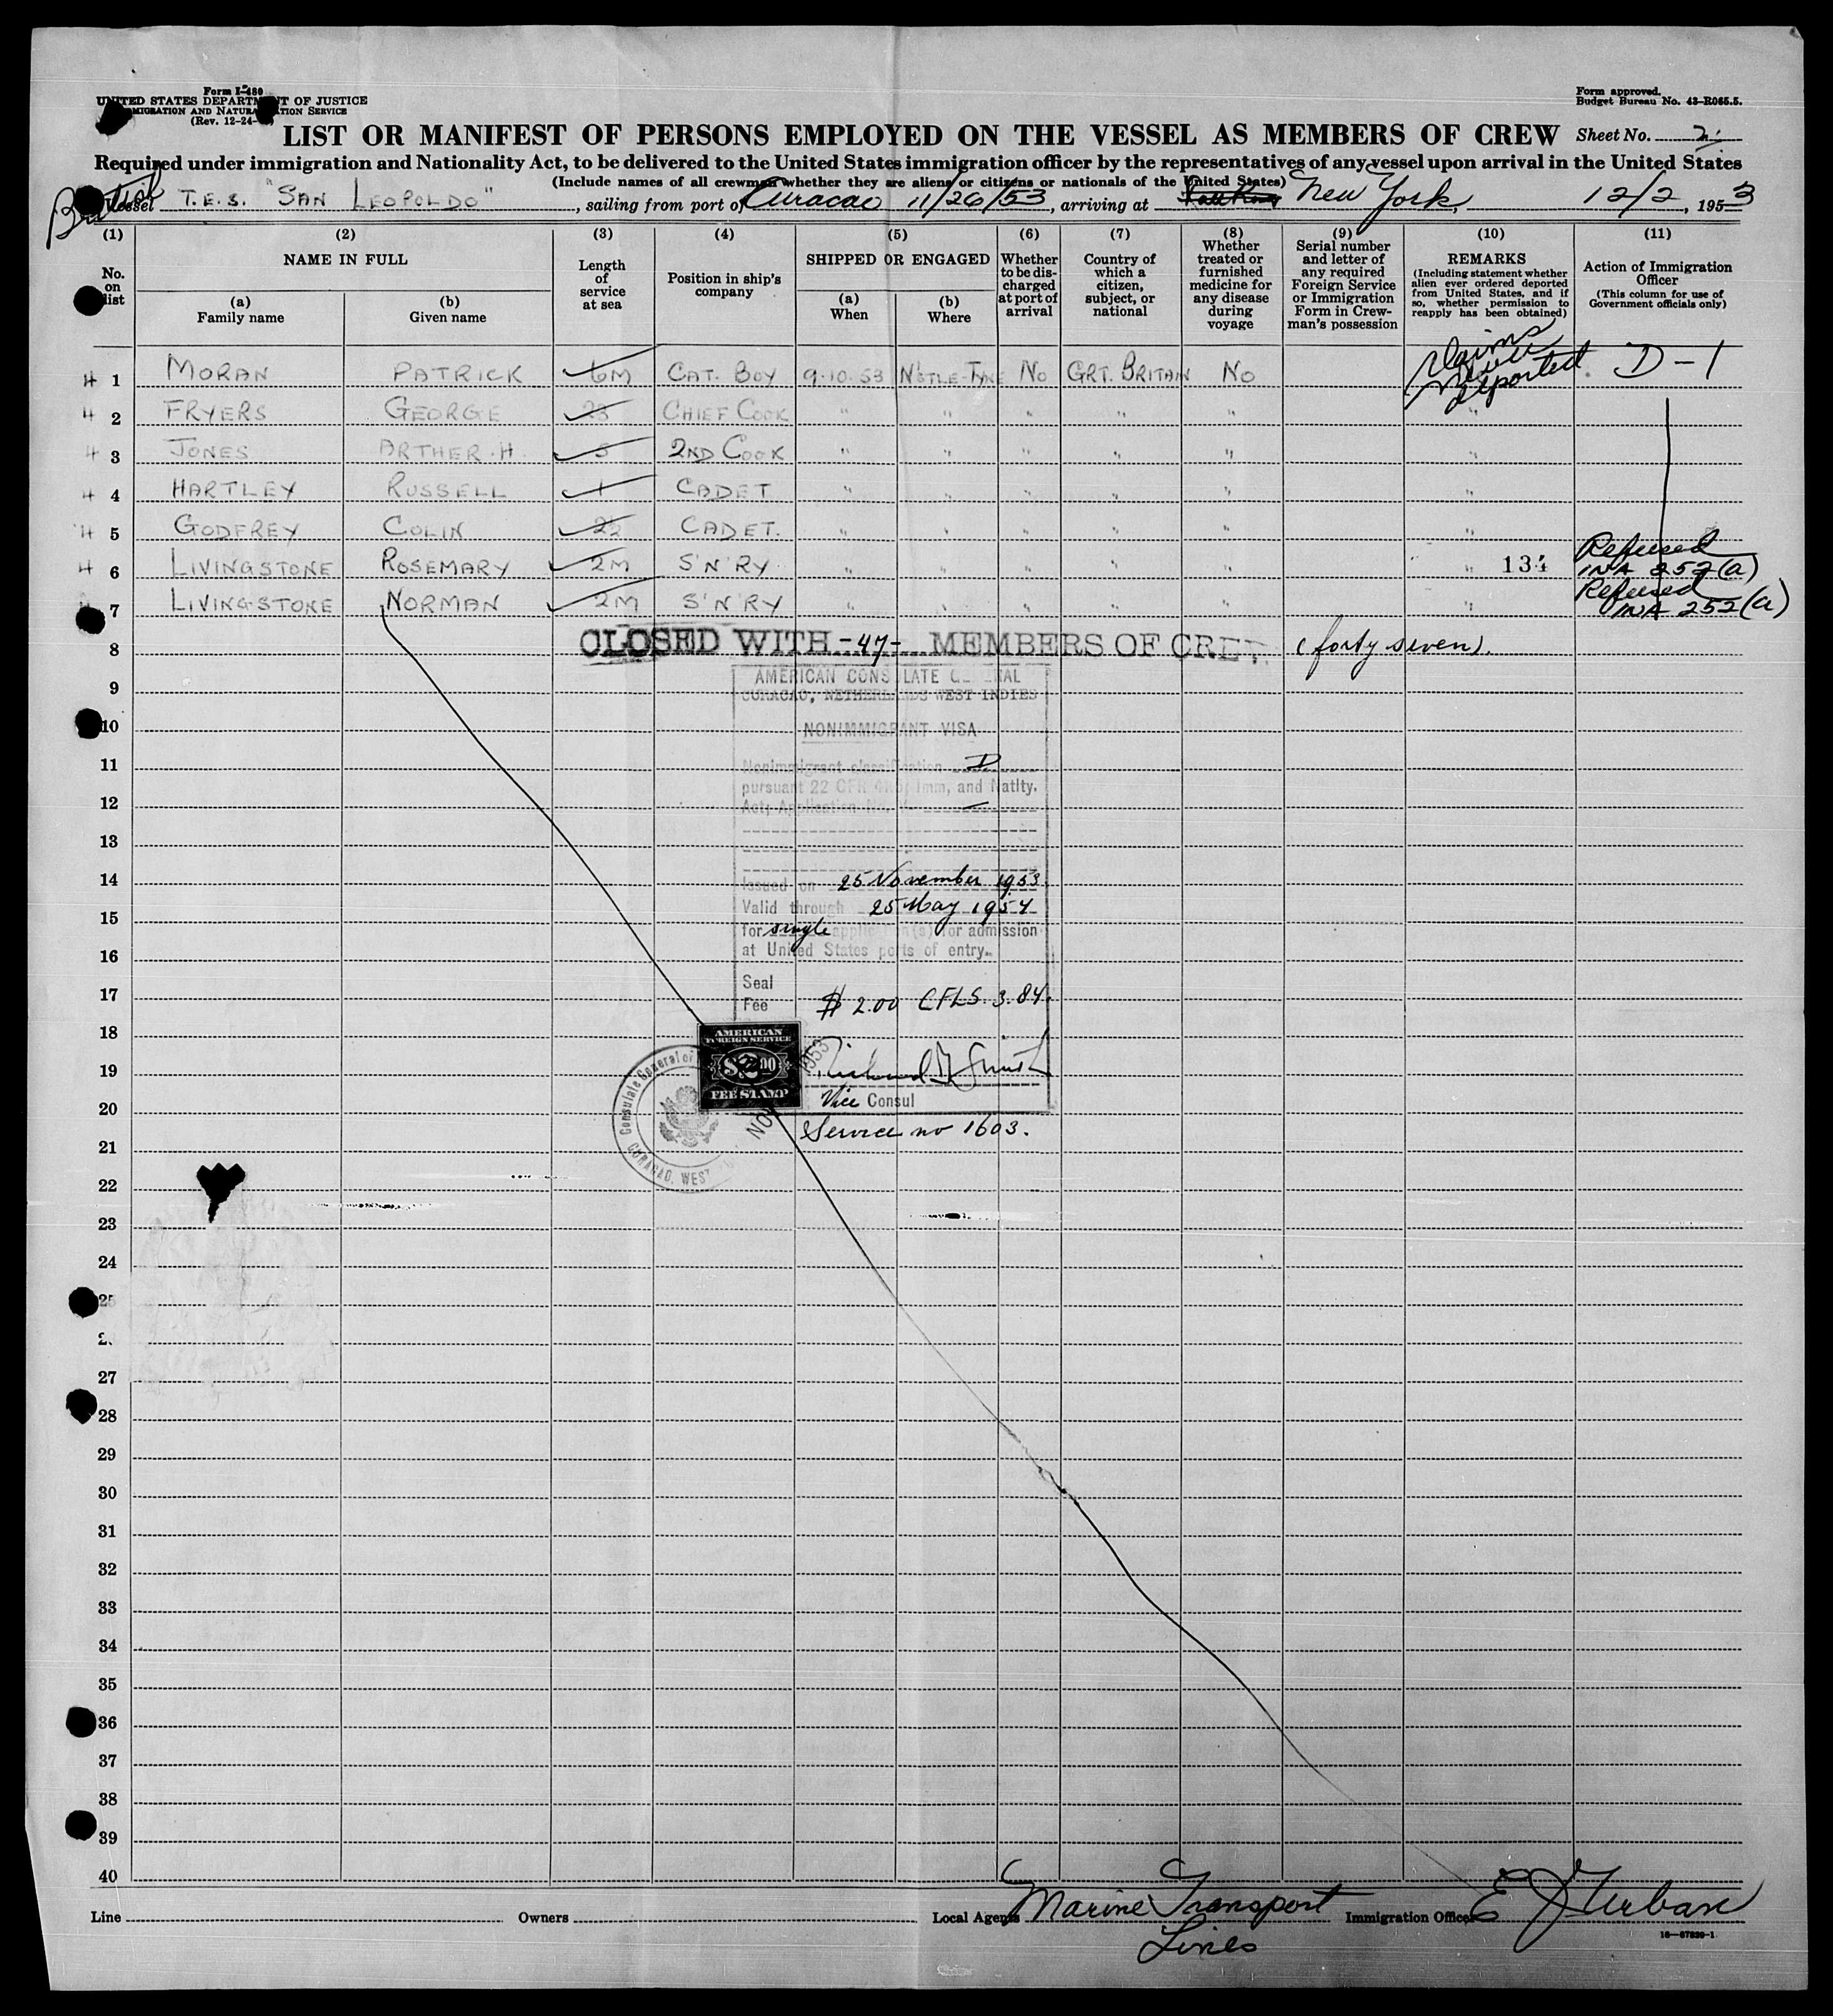 Form I-480
UNITED STATES DEPARTMENT OF JUSTICE
IMMIGRATION AND NATURALIZATION SERVICE
(Rev. 12-24-
Form approved.
Budget Bureau No. 43-R065.5.
LIST OR MANIFEST OF PERSONS EMPLOYED ON THE VESSEL AS MEMBERS OF CREW Sheet No. 2.
Required under immigration and Nationality Act, to be delivered to the United States immigration officer by the representatives of any vessel upon arrival in the United States
(Include names of all crewman whether they are aliens or citizens or nationals of the United States)
British Vessel T.E.S. "SAN LEOPOLDO", sailing from port of Curacao 11/26/53, arriving at New York, 12/2, 1953
(1) (2) (3) (4) (5) (6) (7) (8) (9) (10) (11)
No. on list
NAME IN FULL
(a) Family name
(b) Given name
Length of service at sea
Position in ship's company
SHIPPED OR ENGAGED
(a) When
(b) Where
Whether to be discharged at port of arrival
Country of which a citizen, subject, or national
Whether treated or furnished medicine for any disease during voyage
Serial number and letter of any required Foreign Service or Immigration Form in Crewman's possession
REMARKS
(Including statement whether alien ever ordered deported from United States, and if so, whether permission to reapply has been obtained)
Action of Immigration Officer
(This column for use of Government officials only)
4 1 MORAN PATRICK 6M CAT. BOY 9.10.53 N'STLE-TYNE NO GRT. BRITAIN NO Claims never deported. D-1
4 2 FRYERS GEORGE 23 CHIEF COOK " " " " " "
4 3 JONES ARTHER.H. 5 2ND COOK " " " " " "
4 4 HARTLEY RUSSELL 1 CADET " " " " " "
4 5 GODFREY COLIN 2½ CADET. " " " " " "
4 6 LIVINGSTONE ROSEMARY 2M S'N'RY " " " " " " 134 Refused INA 252(a)
4 7 LIVINGSTONE NORMAN 2M S'N'RY " " " " " " Refused INA 252(a)
8 CLOSED WITH -47- MEMBERS OF CREW (forty seven).
AMERICAN CONSULATE GENERAL
9 CURACAO, NETHERLANDS WEST INDIES
10 NONIMMIGRANT VISA
11 Nonimmigrant classification D
pursuant 22 CFR Imm, and Natlty.
12 Act; Application No. V. —
13
14 Issued on 25 November 1953
Valid through 25 May 1954
15 for single application(s) for admission
16 at United States ports of entry.
Seal
17 Fee $ 2.00 CFLS. 3.84.
18 AMERICAN FOREIGN SERVICE
19 $2.00
FEE STAMP
Consulate General of
CURACAO, WEST
NOV 1953
Vice Consul
20
21 Service no 1603.
22
23
24
25
27
28
29
30
31
32
33
34
35
36
37
38
39
40
Line Owners Local Agents Marine Transport Lines Immigration Officer
16—67820-1